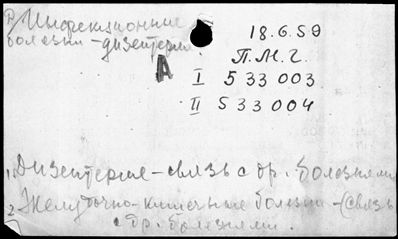 Инфекционные
болезни - дизентерия
18.6.59
П.М.Г.
А
I 533 003
II 533 004
1. Дизентерия - связь с др. болезнями
2. Желудочно-кишечные болезни - (связь
с др. болезнями.